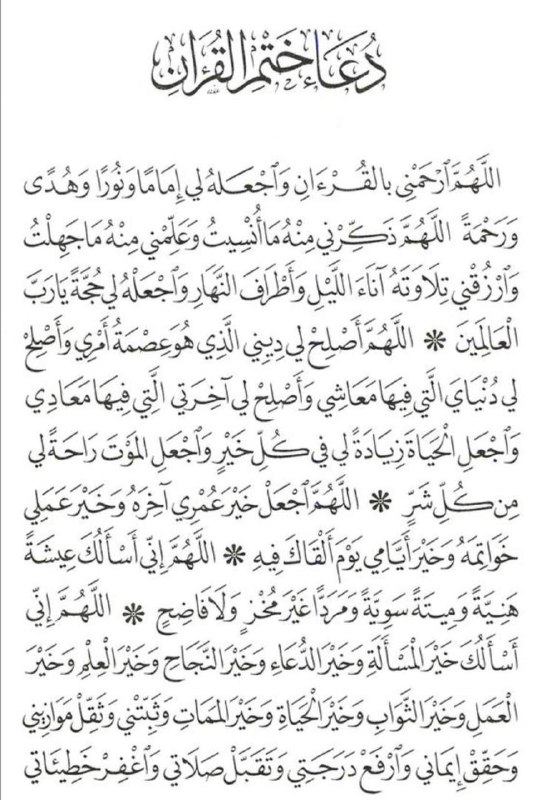 دُعَاءُ خَتْمِ القُرْآنِ
اللَّهُمَّ ٱرْحَمْنِي بالقُرْءَانِ وَٱجْعَلهُ لي إِمَامًا وَنُورًا وَهُدًى
وَرَحْمَةً اللَّهُمَّ ذَكِّرْنِي مِنْهُ مَا أُنْسِيتُ وَعَلِّمْنِي مِنْهُ مَا جَهِلْتُ
وَٱرْزُقْنِي تِلَاوَتَهُ آنَاءَ اللَّيْلِ وَأَطْرَافَ النَّهَارِ وَٱجْعَلْهُ لِي حُجَّةً يَارَبَّ
الْعَالَمِينَ * اللَّهُمَّ أَصْلِحْ لِي دِينِي الَّذِي هُوَ عِصْمَةُ أَمْرِي وَأَصْلِحْ
لِي دُنْيَايَ الَّتِي فِيهَا مَعَاشِي وَأَصْلِحْ لِي آخِرَتِي الَّتِي فِيهَا مَعَادِي
وَٱجْعَلِ الْحَيَاةَ زِيَادَةً لِي فِي كُلِّ خَيْرٍ وَٱجْعَلِ المَوْتَ رَاحَةً لِي
مِن كُلِّ شَرٍّ * اللَّهُمَّ ٱجْعَلْ خَيْرَ عُمْرِي آخِرَهُ وَخَيْرَ عَمَلِي
خَوَاتِمَهُ وَخَيْرَ أَيَّامِي يَوْمَ أَلْقَاكَ فِيهِ * اللَّهُمَّ إِنِّي أَسْأَلُكَ عِيشَةً
هَنِيَّةً وَمِيتَةً سَوِيَّةً وَمَرَدًّا غَيْرَ مُخْزٍ وَلَا فَاضِحٍ * اللَّهُمَّ إِنِّي
أَسْأَلُكَ خَيْرَ المَسْأَلَةِ وَخَيْرَ الدُّعَاءِ وَخَيْرَ النَّجَاحِ وَخَيْرَ العِلْمِ وَخَيْرَ
العَمَلِ وَخَيْرَ الثَّوَابِ وَخَيْرَ الحَيَاةِ وَخَيْرَ المَمَاتِ وَثَبِّتْنِي وَثَقِّلْ مَوَازِينِي
وَحَقِّقْ إِيمَانِي وَٱرْفَعْ دَرَجَتِي وَتَقَبَّلْ صَلَاتِي وَٱغْفِرْ خَطِيئَاتِي